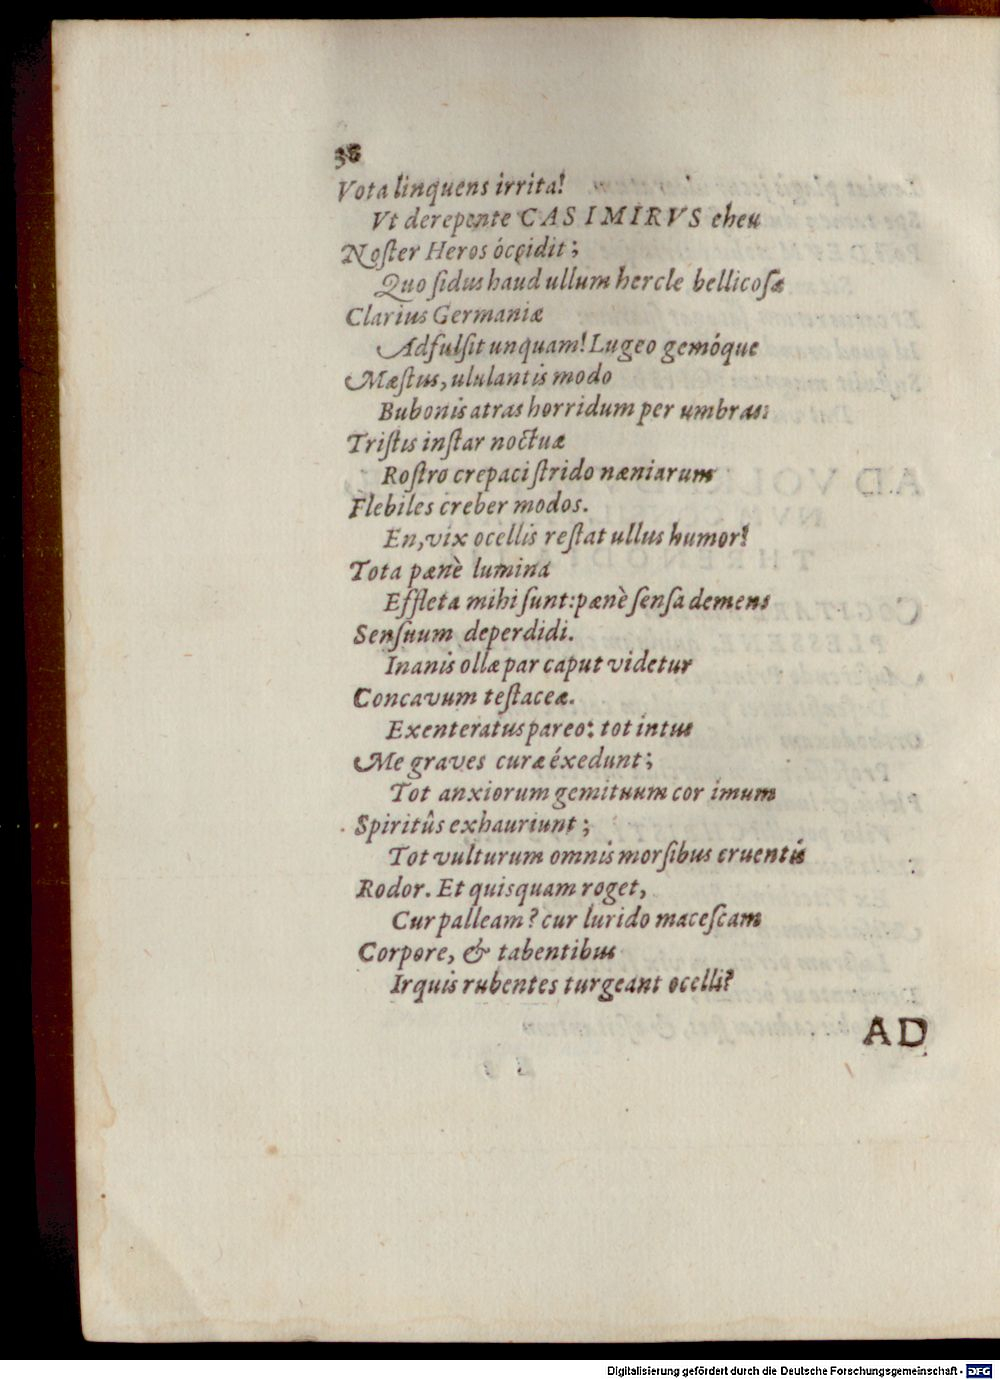 38
Vota linquens irrita!
Vt derepente CASIMIRVS eheu
Noſter Heros óccidit;
Quo ſidus haud ullum hercle bellicoſæ
Clarius Germaniæ
Adfulſit unquam! Lugeo gemóque
Mæſtus, ululantis modo
Bubonis atras horridum per umbras:
Triſtis inſtar noctuæ
Roſtro crepaci ſtrido næniarum
Flebiles creber modos.
En, vix ocellis reſtat ullus humor!
Tota pænè lumina
Effleta mihi ſunt: pænè ſenſa demens
Senſuum deperdidi.
Inanis ollæ par caput videtur
Concavum teſtaceæ.
Exenteratus pareo: tot intus
Me graves curæ éxedunt;
Tot anxiorum gemituum cor imum
Spiritûs exhauriunt;
Tot vulturum omnis morſibus cruentis
Rodor. Et quisquam roget,
Cur palleam? cur lurido maceſcam
Corpore, & tabentibus
Irquis rubentes turgeant ocelli?
AD
Digitalisierung gefördert durch die Deutsche Forschungsgemeinschaft - DFG